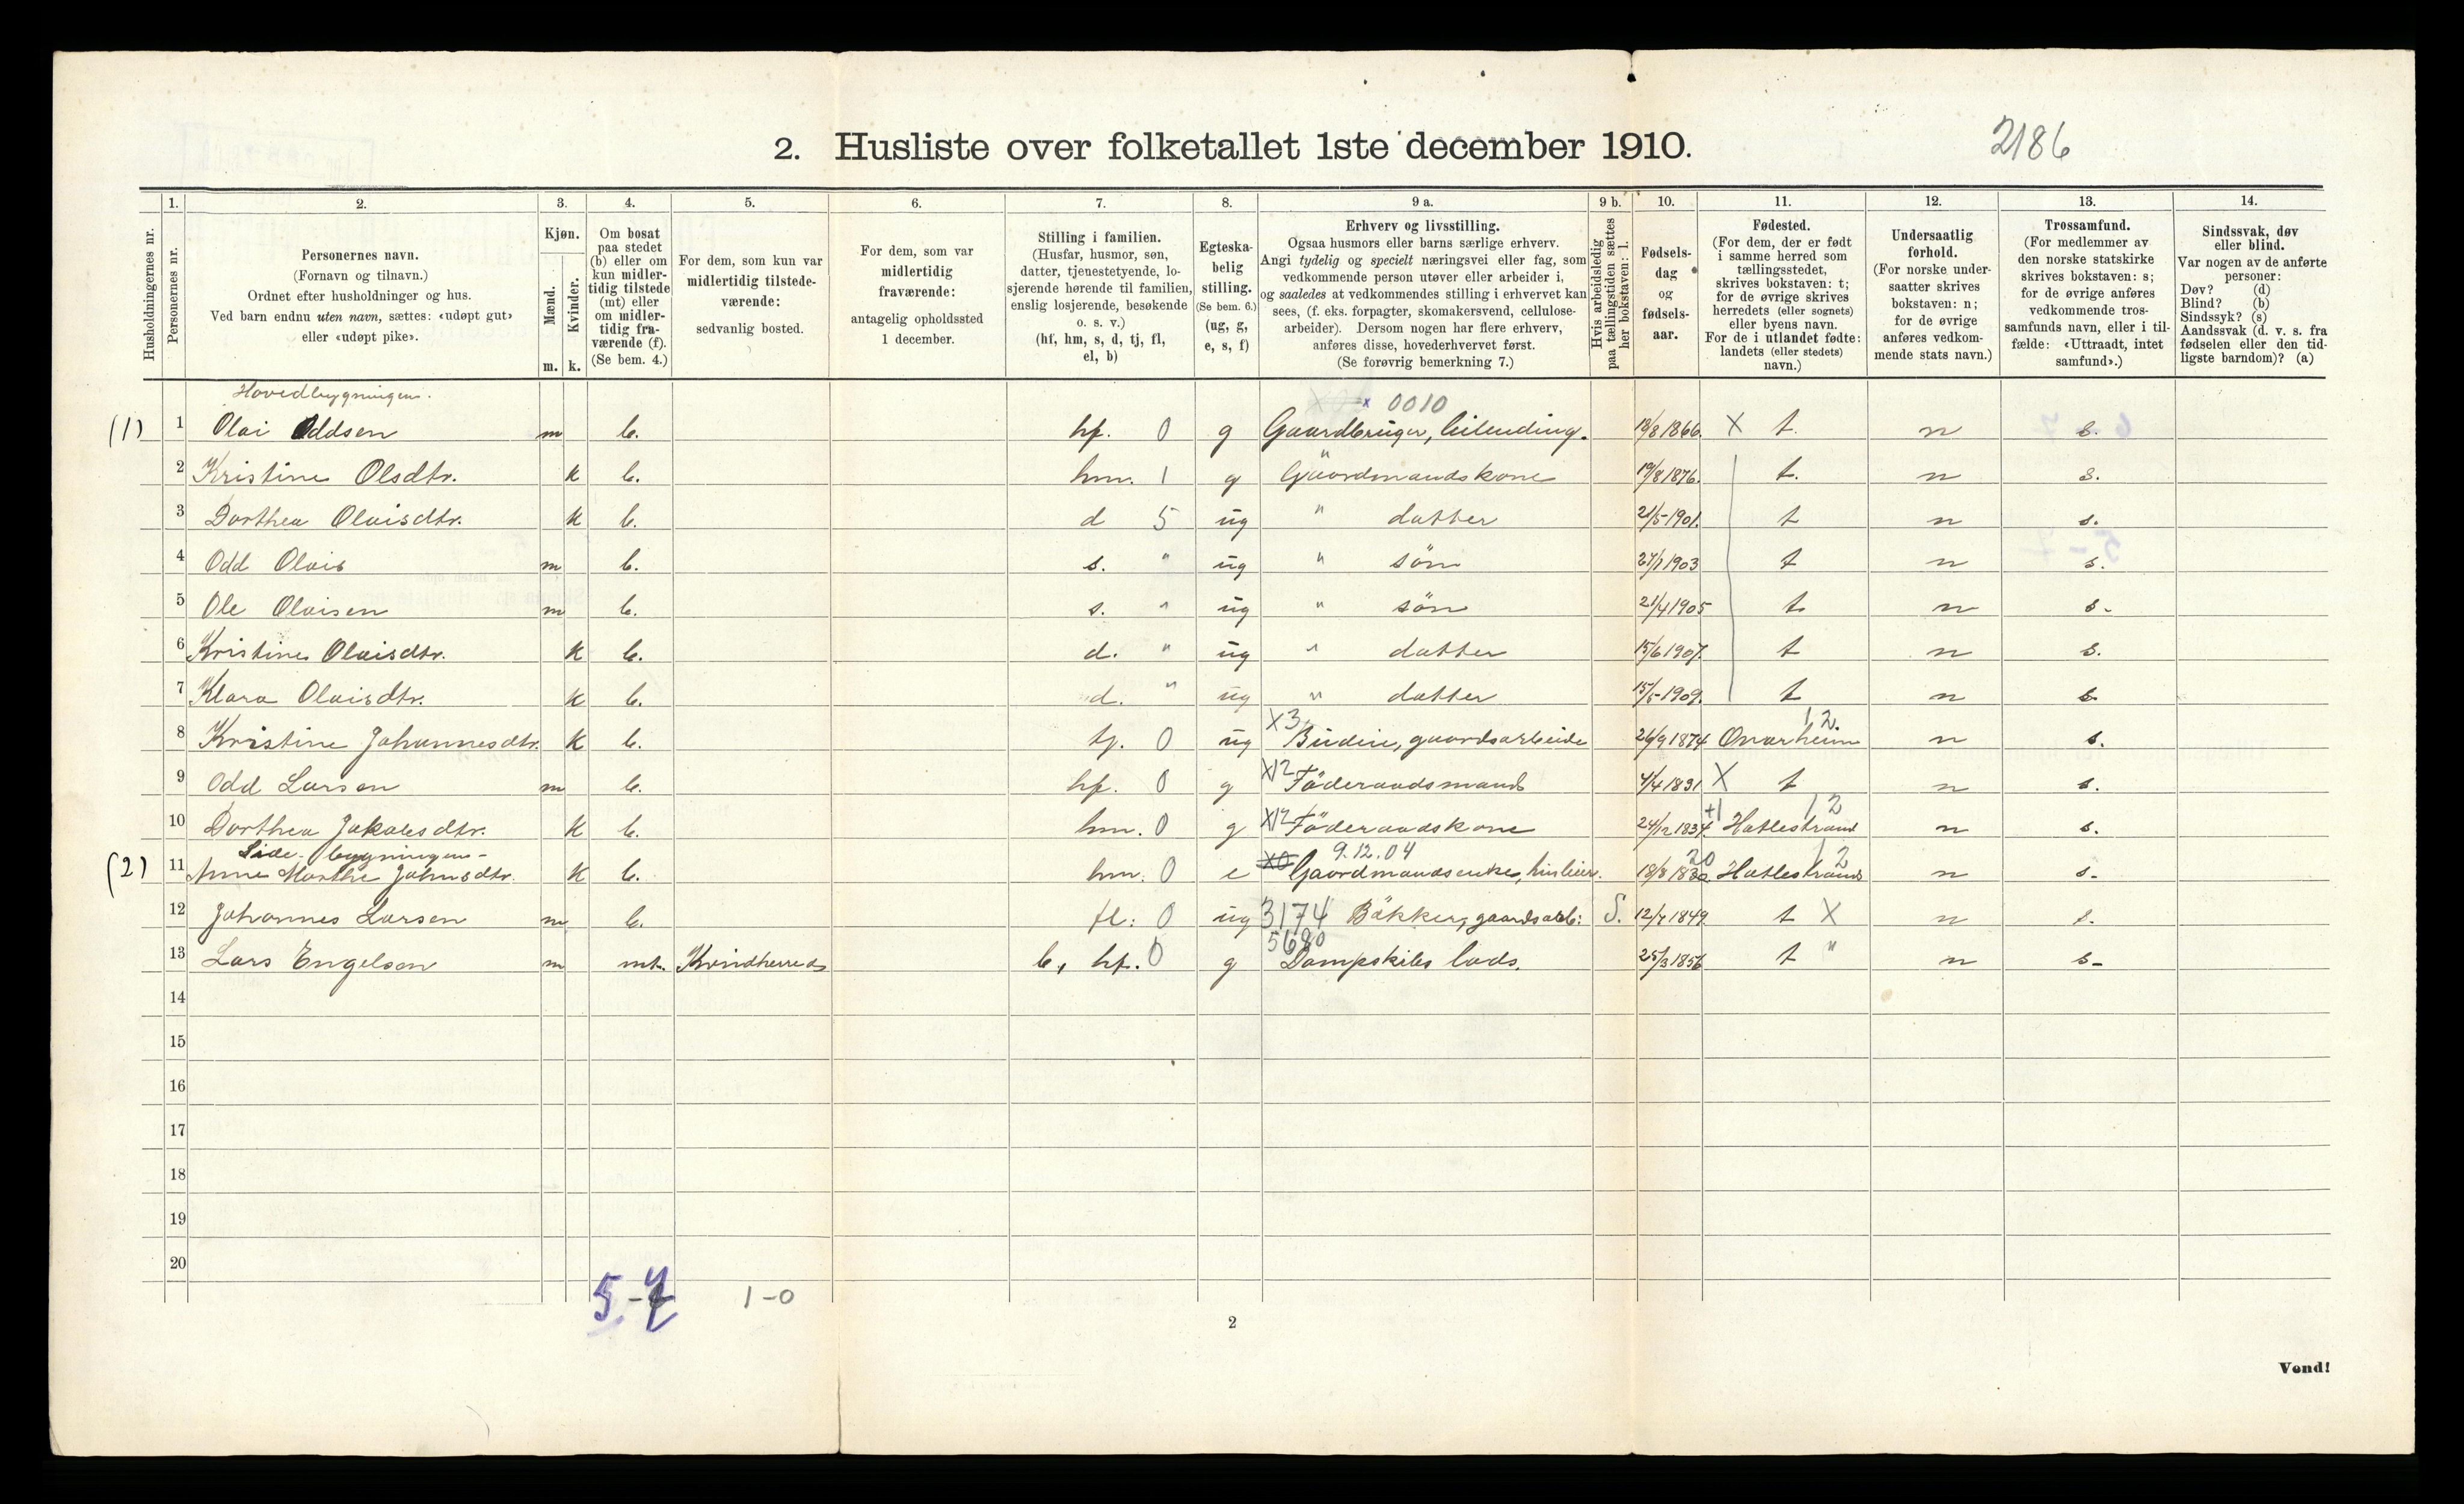 2. Husliste over folketallet 1ste december 1910.
2186
Husholdningernes nr.
1. Personernes nr.
2. Personernes navn.
(Fornavn og tilnavn.)
Ordnet efter husholdninger og hus.
Ved barn endnu uten navn, sættes: «udøpt gut»
eller «udøpt pike».
3. Kjøn.
Mænd. m.
Kvinder. k.
4. Om bosat
paa stedet
(b) eller om
kun midler-
tidig tilstede
(mt) eller
om midler-
tidig fra-
værende (f).
(Se bem. 4.)
5. For dem, som kun var
midlertidig tilstede-
værende:
sedvanlig bosted.
6. For dem, som var
midlertidig
fraværende:
antagelig opholdssted
1 december.
7. Stilling i familien.
(Husfar, husmor, søn,
datter, tjenestetyende, lo-
sjerende hørende til familien,
enslig losjerende, besøkende
o. s. v.)
(hf, hm, s, d, tj, fl,
el, b)
8. Egteska-
belig
stilling.
(Se bem. 6.)
(ug, g,
e, s, f)
9 a. Erhverv og livsstilling.
Ogsaa husmors eller barns særlige erhverv.
Angi tydelig og specielt næringsvei eller fag, som
vedkommende person utøver eller arbeider i,
og saaledes at vedkommendes stilling i erhvervet kan
sees, (f. eks. forpagter, skomakersvend, cellulose-
arbeider). Dersom nogen har flere erhverv,
anføres disse, hovederhvervet først.
(Se forøvrig bemerkning 7.)
9 b. Hvis arbeidsledig
paa tællingstiden sættes
her bokstaven: l.
10. Fødsels-
dag
og
fødsels-
aar.
11. Fødested.
(For dem, der er født
i samme herred som
tællingsstedet,
skrives bokstaven: t;
for de øvrige skrives
herredets (eller sognets)
eller byens navn.
For de i utlandet fødte:
landets (eller stedets)
navn.)
12. Undersaatlig
forhold.
(For norske under-
saatter skrives
bokstaven: n;
for de øvrige
anføres vedkom-
mende stats navn.)
13. Trossamfund.
(For medlemmer av
den norske statskirke
skrives bokstaven: s;
for de øvrige anføres
vedkommende tros-
samfunds navn, eller i til-
fælde: «Uttraadt, intet
samfund».)
14. Sindssvak, døv
eller blind.
Var nogen av de anførte
personer:
Døv? (d)
Blind? (b)
Sindssyk? (s)
Aandssvak (d. v. s. fra
fødselen eller den tid-
ligste barndom)? (a)
Hovedbygningen.
x 0010
(1) 1 Olai Oddsen m b. hf. 0 g Gaardbruger, leilending. 18/8 1866. X t. n s.
2 Kristine Olsdtr. k b. hm. 1 g Gaardmandskone 19/8 1876. t. n s.
3 Dorthea Olaisdtr. k b. d 5 ug " datter 21/5 1901. t n s.
4 Odd Olais m b. s. " ug " søn 27/1 1903 t n s.
5 Ole Olaisen m b. s. " ug " søn 21/4 1905 t n s.
6 Kristine Olaisdtr. k b. d. " ug " datter 15/6 1907. t n s.
7 Klara Olaisdtr. k b. d. " ug " datter 15/5 1909. t n s.
X3 12.
8 Kristine Johannesdtr. k b. tj. 0 ug Budeie, gaardsarbeide 26/9 1874 Onarheim n s.
9 Odd Larsen m b. hf. 0 g X12 Føderaadsmand 4/4 1831 X t n s.
+1 12
10 Dorthea Jakobsdtr. k b. hm. 0 g X12 Føderaadskone 24/12 1834. Hatlestrand n s.
Side-bygningen-
9.12.04 20 12
(2) 11 Anne Marthe Johnsdtr. k b. hm. 0 e X0 Gaardmandsenke, husleier. 18/8 1830 Hatlestrand n s.
12 Johannes Larsen m b. fl: 0 ug 3174 Bøkker, gaardsarb: S. 12/7 1849 t X n s.
5680
13 Lars Engelsen m mt. Kvindherred b, hf. 0 g Dampskibs lods. 25/3 1856 t " n s-
14
15
16
17
18
19
20
5-7 1-0
2
Vend!